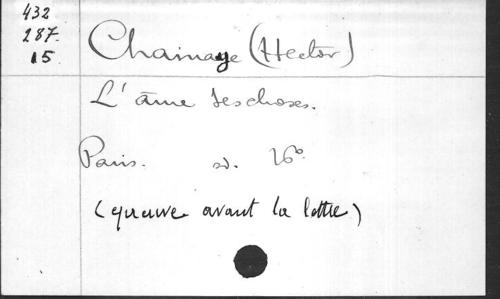 432
287.
15
Chainaye (Hector)
L'âme des choses.
Paris. sd. 16°.
(épreuve avant la lettre)